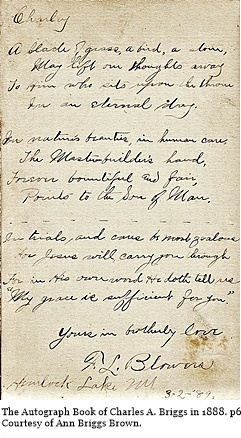 Charley
A blade of grass, a bird, a stone,
May lift our thoughts away
To him who sits upon the throne
In an eternal day.
In nature's beauties, in human care,
The Masterbuilders hand,
Forever bountiful and fair,
Points to the Son of Man,
In trials, and cares be most zealous
For Jesus will carry you through
For in His own word He doth tell us
"My grace is sufficient for you."
Yours in brotherly love
F. L. Blowers
Hemlock Lake NY
3-2-'89.
The Autograph Book of Charles A. Briggs in 1888. p6
Courtesy of Ann Briggs Brown.